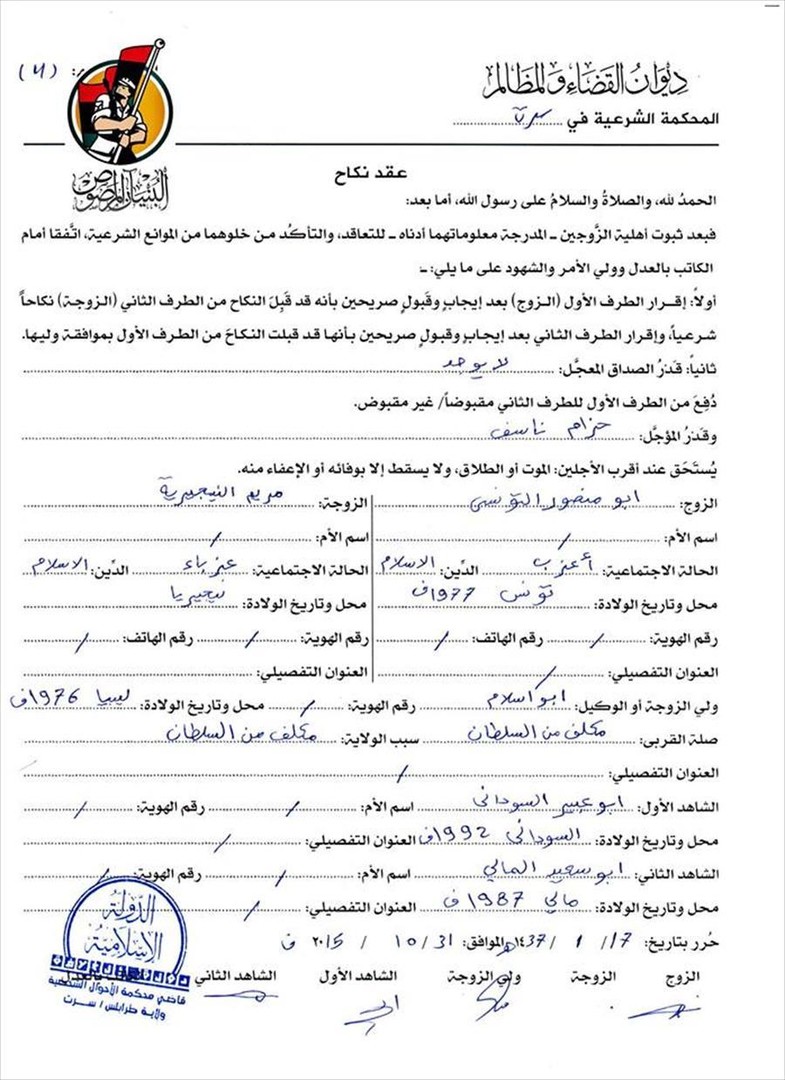 (٤)
ديوان القضاء والمظالم
المحكمة الشرعية في سرت
البنيان المرصوص
عقد نكاح
الحمدُ لله، والصلاةُ والسلامُ على رسول الله، أما بعد:
فبعد ثبوت أهلية الزَّوجين ـ المدرجة معلوماتهما أدناه ـ للتعاقد، والتأكُد من خلوهما من الموانع الشرعية، اتَّفقا أمام
الكاتب بالعدل وولي الأمر والشهود على ما يلي: ـ
أولاً: إقرار الطرف الأول (الزوج) بعد إيجابٍ وقَبولٍ صريحين بأنه قد قَبِلَ النكاح من الطرف الثاني (الزوجة) نكاحاً
شرعياً، وإقرار الطرف الثاني بعد إيجابٍ وقبولٍ صريحين بأنها قد قبلت النكاحَ من الطرف الأول بموافقة وليها.
ثانياً: قَدَرُ الصداق المعجَّل: لا يوجد
دُفِعَ من الطرف الأول للطرف الثاني مقبوضاً/ غير مقبوض.
وقَدَرُ المؤجَّل: حزام ناسف
يُستَحَق عند أقرب الأجلين: الموت أو الطلاق، ولا يسقط إلا بوفائه أو الإعفاء منه.
الزوج: ابو منصور التونسي الزوجة: مريم النيجيرية
اسم الأم: / اسم الأم: /
الحالة الاجتماعية: أعزب الدِّين: الاسلام الحالة الاجتماعية: عزباء الدِّين: الاسلام
محل وتاريخ الولادة: تونس 1977ف محل وتاريخ الولادة: نيجيريا
رقم الهوية: / رقم الهاتف: / رقم الهوية: / رقم الهاتف: /
العنوان التفصيلي: / العنوان التفصيلي:
ولي الزوجة أو الوكيل: ابو اسلام رقم الهوية: / محل وتاريخ الولادة: ليبيا 1976ف
صلة القربى: مكلف من السلطان سبب الولاية: مكلف من السلطان
العنوان التفصيلي: /
الشاهد الأول: ابو عبير السوداني اسم الأم: / رقم الهوية: /
محل وتاريخ الولادة: السوداني 1992ف العنوان التفصيلي: /
الشاهد الثاني: ابو سعيد المالي اسم الأم: / رقم الهوية: /
محل وتاريخ الولادة: مالي 1987 ف العنوان التفصيلي: /
حُرر بتاريخ: 17/ 1 /1437هـ الموافق: 10/31 / 2015 ف
الزوج الزوجة ولي الزوجة الشاهد الأول الشاهد الثاني بالعدل
الدولة
الإسلامية
قاضي محكمة الأحوال الشخصية
ولاية طرابلس / سرت